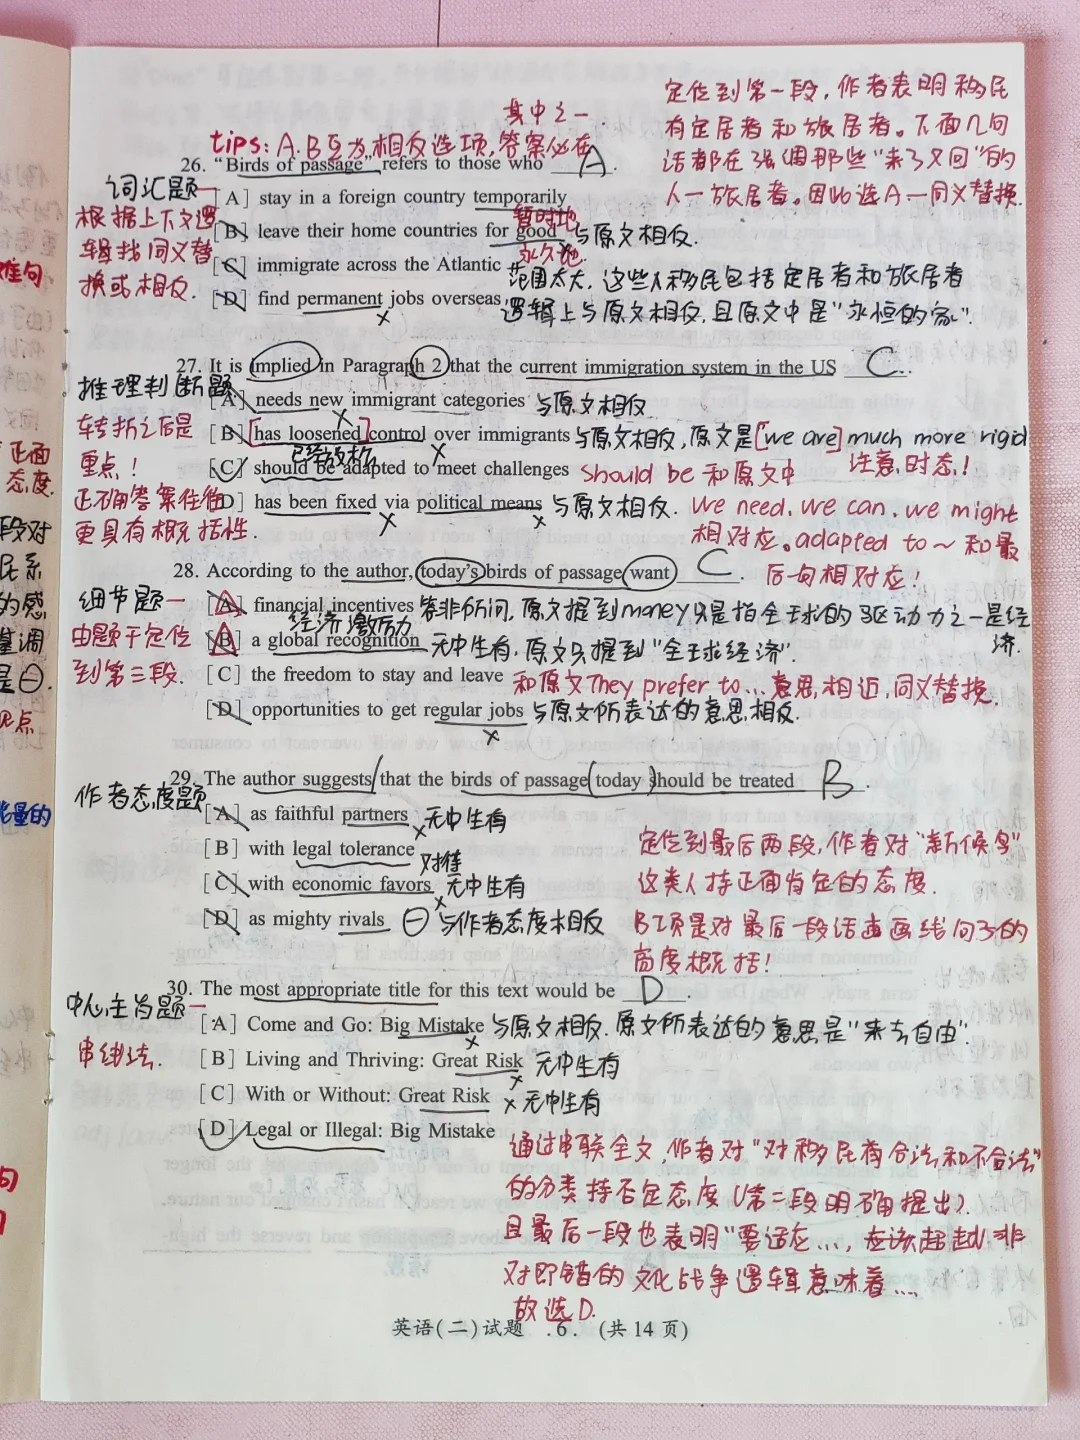 定位到第一段,作者表明移民
有定居者和旅居者。下面几句
话都在强调那些"来了又回"的
人一旅居者。因此选A一同义替换.
其中之一.
tips: A.B互为相反选项,答案必在
26. "Birds of passage" refers to those who A
词汇题一
根据上下文逻
辑找同义替
换或相反.
[A] stay in a foreign country temporarily
暂时地
[B] leave their home countries for good 与原文相反.
永久地
[C] immigrate across the Atlantic 范围太大,这些人移民包括定居者和旅居者
[D] find permanent jobs overseas 逻辑上与原文相反,且原文中是"永恒的家".
27. It is implied in Paragraph 2 that the current immigration system in the US C.
推理判断题
转折之后是
重点!
正确答案往往
更具有概括性.
[A] needs new immigrant categories 与原文相反
[B] has loosened control over immigrants 与原文相反,原文是[we are] much more rigid
已经放松
注意,时态!
[C] should be adapted to meet challenges should be 和原文中
[D] has been fixed via political means 与原文相反. we need, we can, we might
相对应。adapted to ~ 和最
后句相对应!
28. According to the author, today's birds of passage want C.
细节题一
由题干定位
到第三段.
[A] financial incentives 答非所问,原文提到money只是指全球的驱动力之一是经
济.
经济激励力
[B] a global recognition 无中生有,原文只提到"全球经济".
[C] the freedom to stay and leave 和原文They prefer to...意思相近,同义替换.
[D] opportunities to get regular jobs 与原文所表达的意思相反.
29. The author suggests that the birds of passage today should be treated B.
作者态度题
[A] as faithful partners 无中生有
[B] with legal tolerance
对待
[C] with economic favors 无中生有
[D] as mighty rivals ⊖ 与作者态度相反
定位到最后两段,作者对"新候鸟"
这类人持正面肯定的态度.
B项是对最后一段话画线句子的
高度概括!
30. The most appropriate title for this text would be D.
中心主旨题一
串线法.
[A] Come and Go: Big Mistake 与原文相反.原文所表达的意思是"来去自由".
[B] Living and Thriving: Great Risk 无中生有
[C] With or Without: Great Risk 无中生有
[D] Legal or Illegal: Big Mistake
通过串联全文,作者对"对移民有合法和不合法"
的分类持否定态度(第二段明确提出).
且最后一段也表明"要适应...,应该超越非
对即错的文化战争逻辑意味着....
故选D.
英语(二)试题 .6. (共14页)